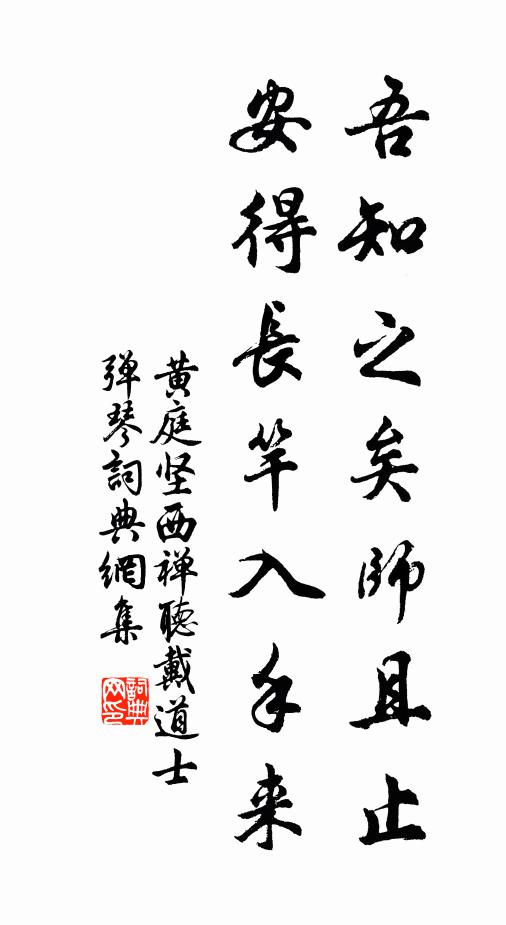 吾知之矣師且止
安得長竿入手来
黄庭坚西禅聽戴道士
弹琴詞典網集
詞典网印